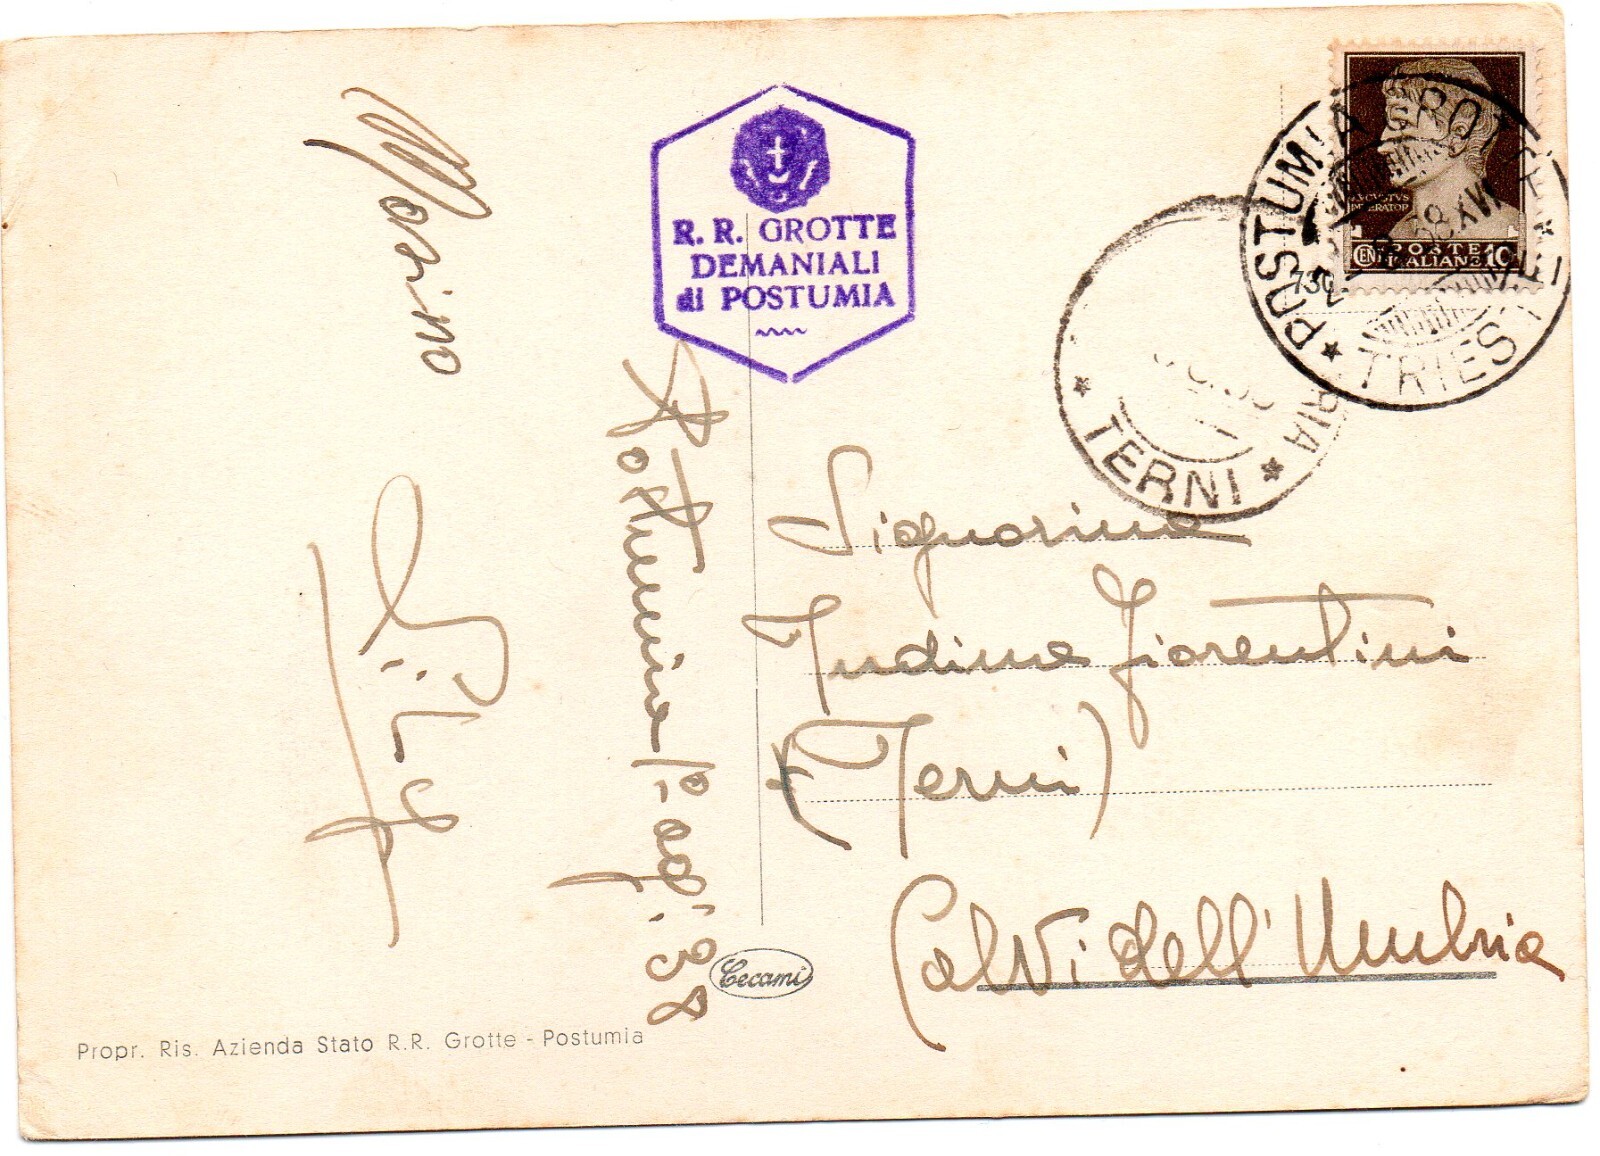 R. R. GROTTE
DEMANIALI
di POSTUMIA
AVGVSTVS
IMPERATOR
CENT POSTE 10
ITALIANE
* POSTUMIA GROTTE *
TRIESTE
38 XVI
* TERNI *
Marino
Postumia 1°- ag. 38
Signorina
Fiorentini
(Terni)
Calvi dell'Umbria
Cecami
Propr. Ris. Azienda Stato R.R. Grotte - Postumia